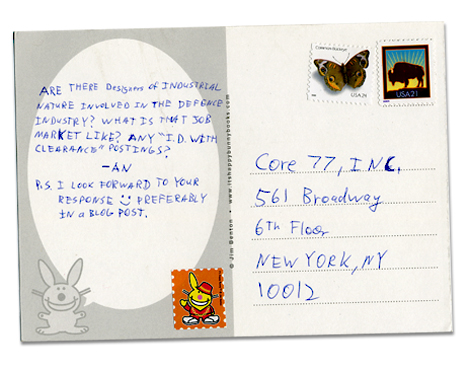 ARE THERE Designers of INDUSTRIAL
NATURE INVOLVED IN THE DEFENCE
INDUSTRY? WHAT IS THAT JOB
MARKET LIKE? ANY "I.D. WITH
CLEARANCE" POSTINGS?
-AN
P.S. I LOOK FORWARD TO YOUR
RESPONSE PREFERABLY
IN A BLOG POST.
© Jim Benton • www.itshappybunnybooks.com
Common Buckeye
USA 24
USA21
Core 77, INC.
561 Broadway
6th Floor
NEW YORK, NY
10012